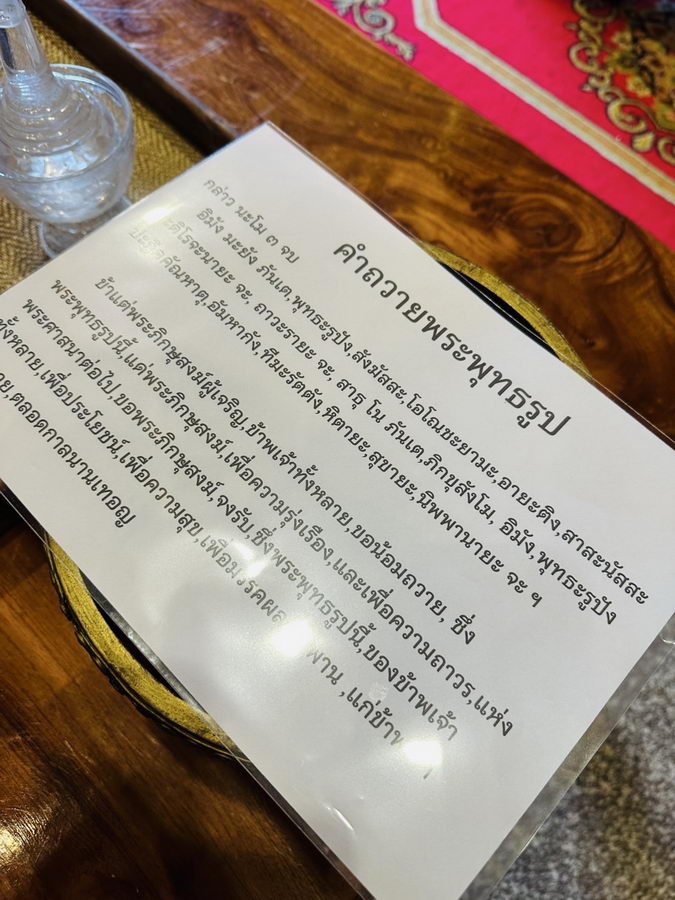 คำถวายพระพุทธรูป
กล่าว นะโม ๓ จบ
อิมัง มะยัง ภันเต,พุทธะรูปัง,สังฆัสสะ,โอโณชะยามะ,อายะติง,สาสะนัสสะ
ะติโรจะนายะ จะ, ถาวะรายะ จะ, สาธุ โน ภันเต,ภิกขุสังโฆ, อิมัง,พุทธะรูปัง
ปะฏิคคัณหาตุ,อัมหากัง,ทีฆะรัตตัง,หิตายะ,สุขายะ,นิพพานายะ จะ ฯ
ข้าแต่พระภิกษุสงฆ์ผู้เจริญ,ข้าพเจ้าทั้งหลาย,ขอน้อมถวาย, ซึ่ง
พระพุทธรูปนี้,แด่พระภิกษุสงฆ์,เพื่อความรุ่งเรือง,และเพื่อความถาวร,แห่ง
พระศาสนาต่อไป,ขอพระภิกษุสงฆ์,จงรับ,ซึ่งพระพุทธรูปนี้,ของข้าพเจ้า
ทั้งหลาย,เพื่อประโยชน์,เพื่อความสุข,เพื่อมรรคผล พาน ,แก่ข้าพ
าย,ตลอดกาลนานเทอญ